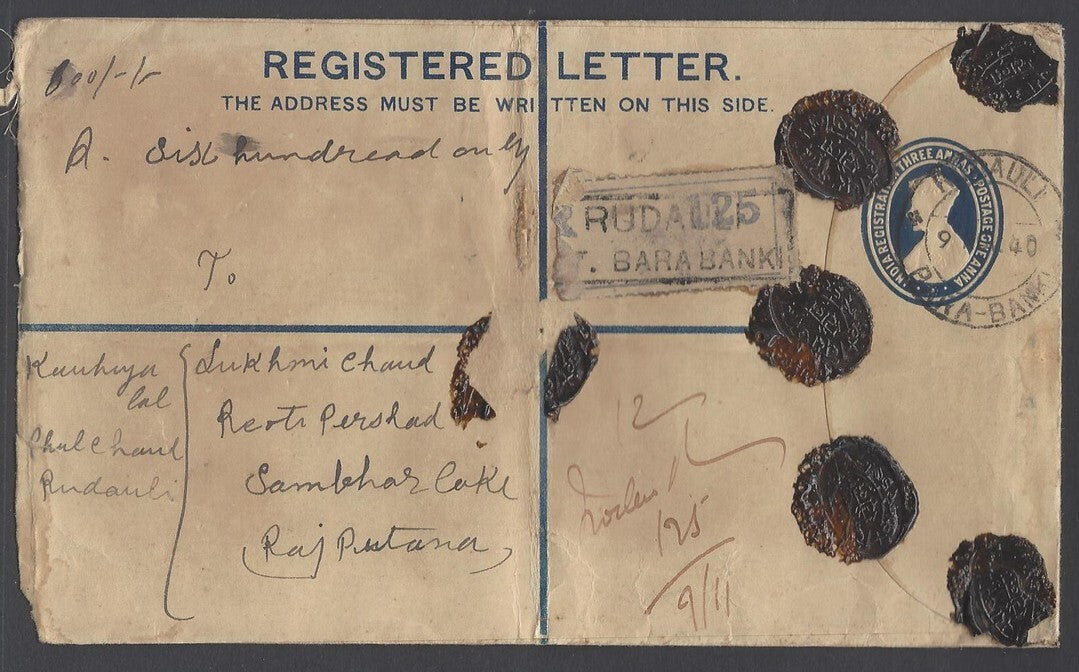 REGISTERED LETTER.
THE ADDRESS MUST BE WRITTEN ON THIS SIDE.
600/-/-
R. Six hundread only
RUDAULI 125
T. BARABANKI
INDIA REGISTRATION THREE ANNAS · POSTAGE ONE ANNA
RUDAULI
9 40
BARA-BANKI
To
Kanhuya
Lal
Phul Chand
Rudauli
Lukhmi Chand
Reoti Pershad
Sambhar Lake
Raj Putana
12
125
9/11